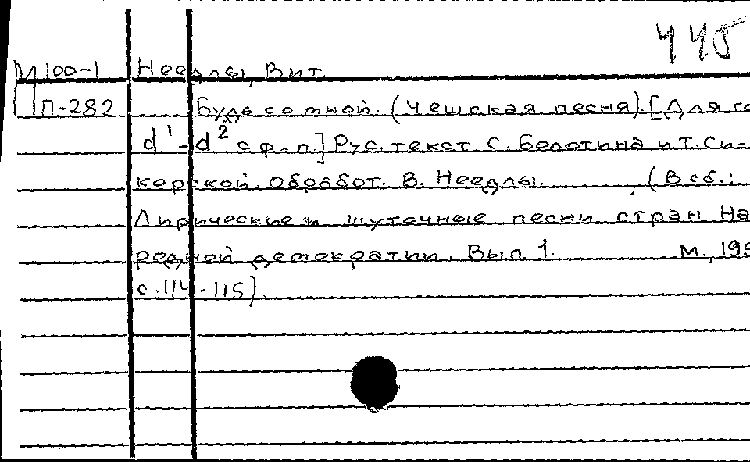 445
М100-1 Неедлы, Вит.
П-282 Будь со мной. (Чешская песня). [Для го
d¹-d² с ф.-п.] Рус. текст С. Болотина и Т. Си-
корской. Обработ. В. Неедлы. (В сб.:
Лирические и шуточные песни стран На
родной демократии. Вып 1. М., 195
с. 114-115)